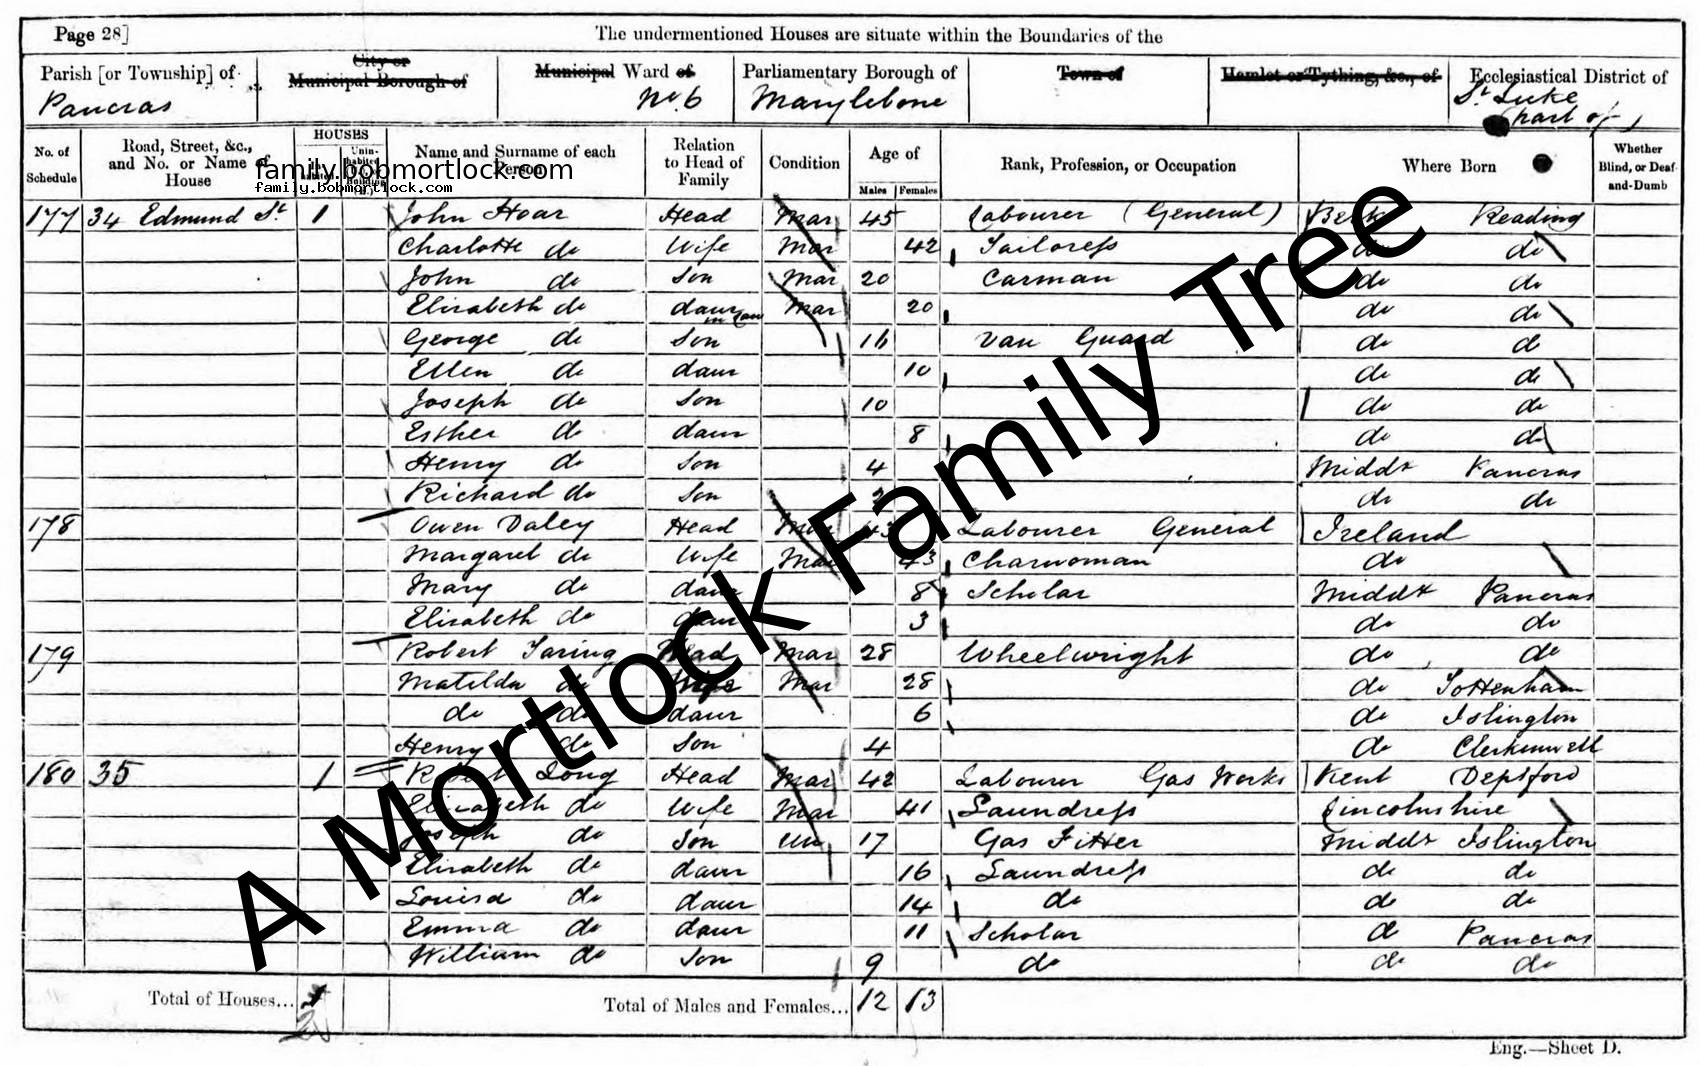 Page 28]
The undermentioned Houses are situate within the Boundaries of the
Parish [or Township] of Pancras
City or Municipal Borough of
Municipal Ward of No. 6
Parliamentary Borough of Marylebone
Town of
Hamlet or Tything, &c., of
Ecclesiastical District of St Luke (part of)
No. of Schedule
Road, Street, &c., and No. or Name of House
HOUSES
Name and Surname of each Person
Relation to Head of Family
Condition
Age of
Males Females
Rank, Profession, or Occupation
Where Born
Whether Blind, or Deaf-and-Dumb
family.bobmortlock.com
family.bobmortlock.com
177 34 Edmund St 1 John Hoar Head Mar 45 Labourer (General) Berks Reading
Charlotte do Wife Mar 42 Tailoress do do
John do Son Mar 20 Carman do do
Elizabeth do daur in law Mar 20 do do
George do Son 16 Van Guard do do
Ellen do daur 10 do do
Joseph do Son 10 do do
Esther do daur 8 do do
Henry do Son 4 Middx Pancras
Richard do Son do do
178 Owen Daley Head Mar 43 Labourer General Ireland
Margaret do Wife Mar 43 Charwoman do
Mary do daur 8 Scholar Middx Pancras
Elizabeth do daur 3 do do
179 Robert Taring Head Mar 28 Wheelwright do do
Matilda do Wife Mar 28 do Tottenham
do do daur 6 do Islington
Henry do Son 4 do Clerkenwell
180 35 1 Robert Long Head Mar 42 Labourer Gas Works Kent Deptford
Elizabeth do Wife Mar 41 Laundress Lincolnshire
Joseph do Son Un 17 Gas Fitter Middx Islington
Elizabeth do daur 16 Laundress do do
Louisa do daur 14 do do do
Emma do daur 11 Scholar do Pancras
William do Son 9 do do do
Total of Houses... 2
Total of Males and Females... 12 13
Eng.—Sheet D.
A Mortlock Family Tree